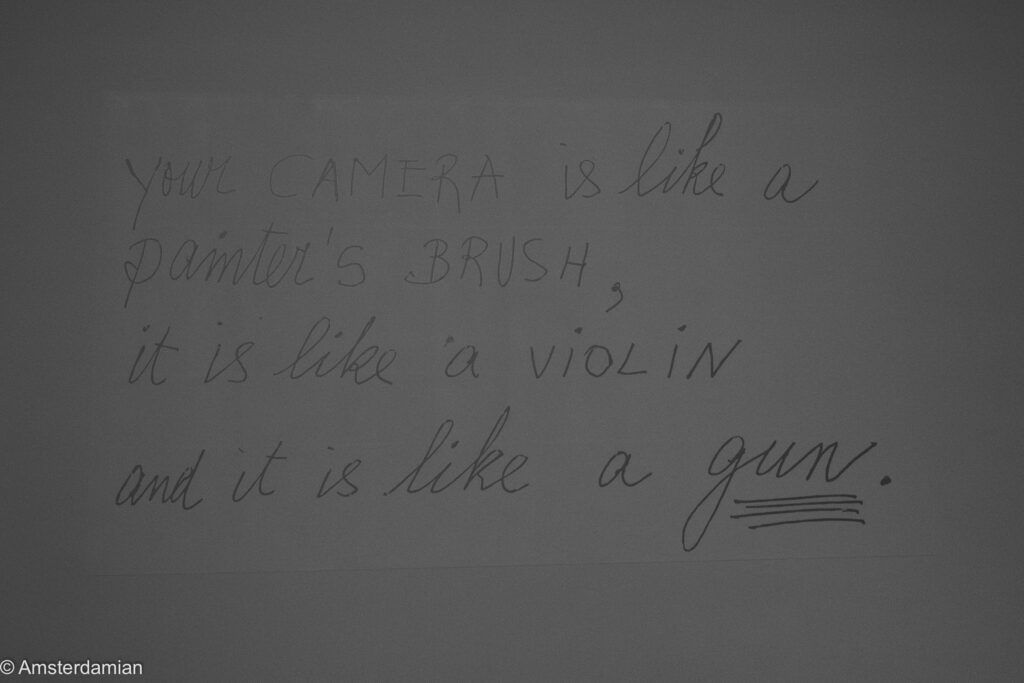 your CAMERA is like a
painter's BRUSH,
it is like a ViOLiN
and it is like a gun.
© Amsterdamian